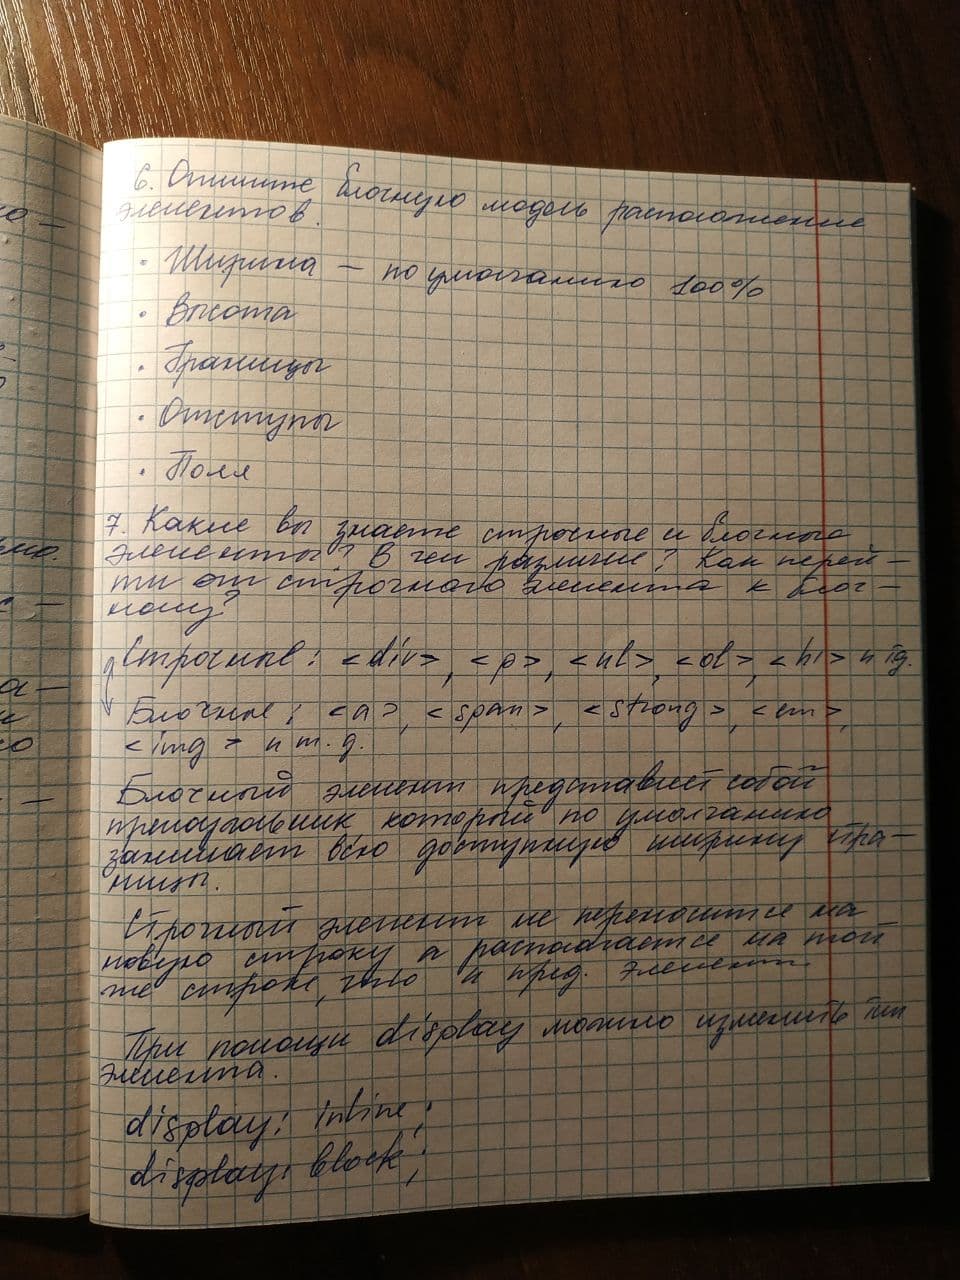 6. Опишите блочную модель расположение
элементов.
• Ширина – по умолчанию 100%
• Высота
• Границы
• Отступы
• Поля
7. Какие вы знаете строчные и блочные
элементы? В чем различие? Как перей-
ти от строчного элемента к блоч-
ному?
Строчные: <div>, <p>, <ul>, <ol>, <h1> и тд.
Блочные: <a>, <span>, <strong>, <em>,
<img> и т.д.
Блочный элемент представляет собой
прямоугольник, который по умолчанию
занимает всю доступную ширину стра-
ницы.
Строчный элемент не переносится на
новую строку а располагается на той
же строке, что и пред. элемент.
При помощи display можно изменить тип
элемента.
display: inline;
display: block;